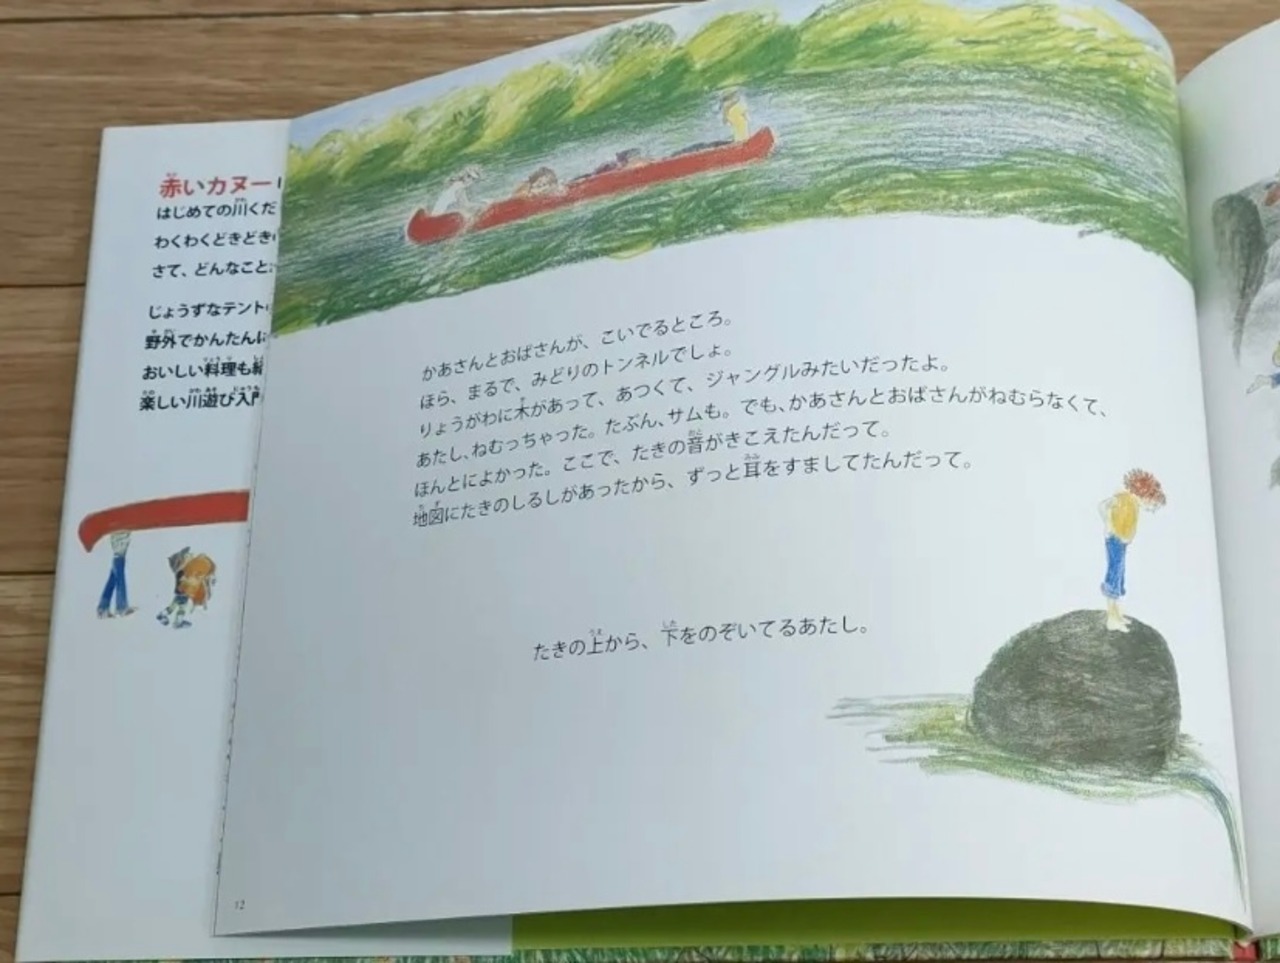 赤いカヌー
はじめての川くだ
わくわくどきどき
さて、どんなこと
じょうずなテント
野外でかんたんに
おいしい料理も
楽しい川遊び入門
かあさんとおばさんが、こいでるところ。
ほら、まるで、みどりのトンネルでしょ。
りょうがわに木があって、あつくて、ジャングルみたいだったよ。
あたし、ねむっちゃった。たぶん、サムも。でも、かあさんとおばさんがねむらなくて、
ほんとによかった。ここで、たきの音がきこえたんだって。
地図にたきのしるしがあったから、ずっと耳をすましてたんだって。
たきの上から、下をのぞいてるあたし。
12